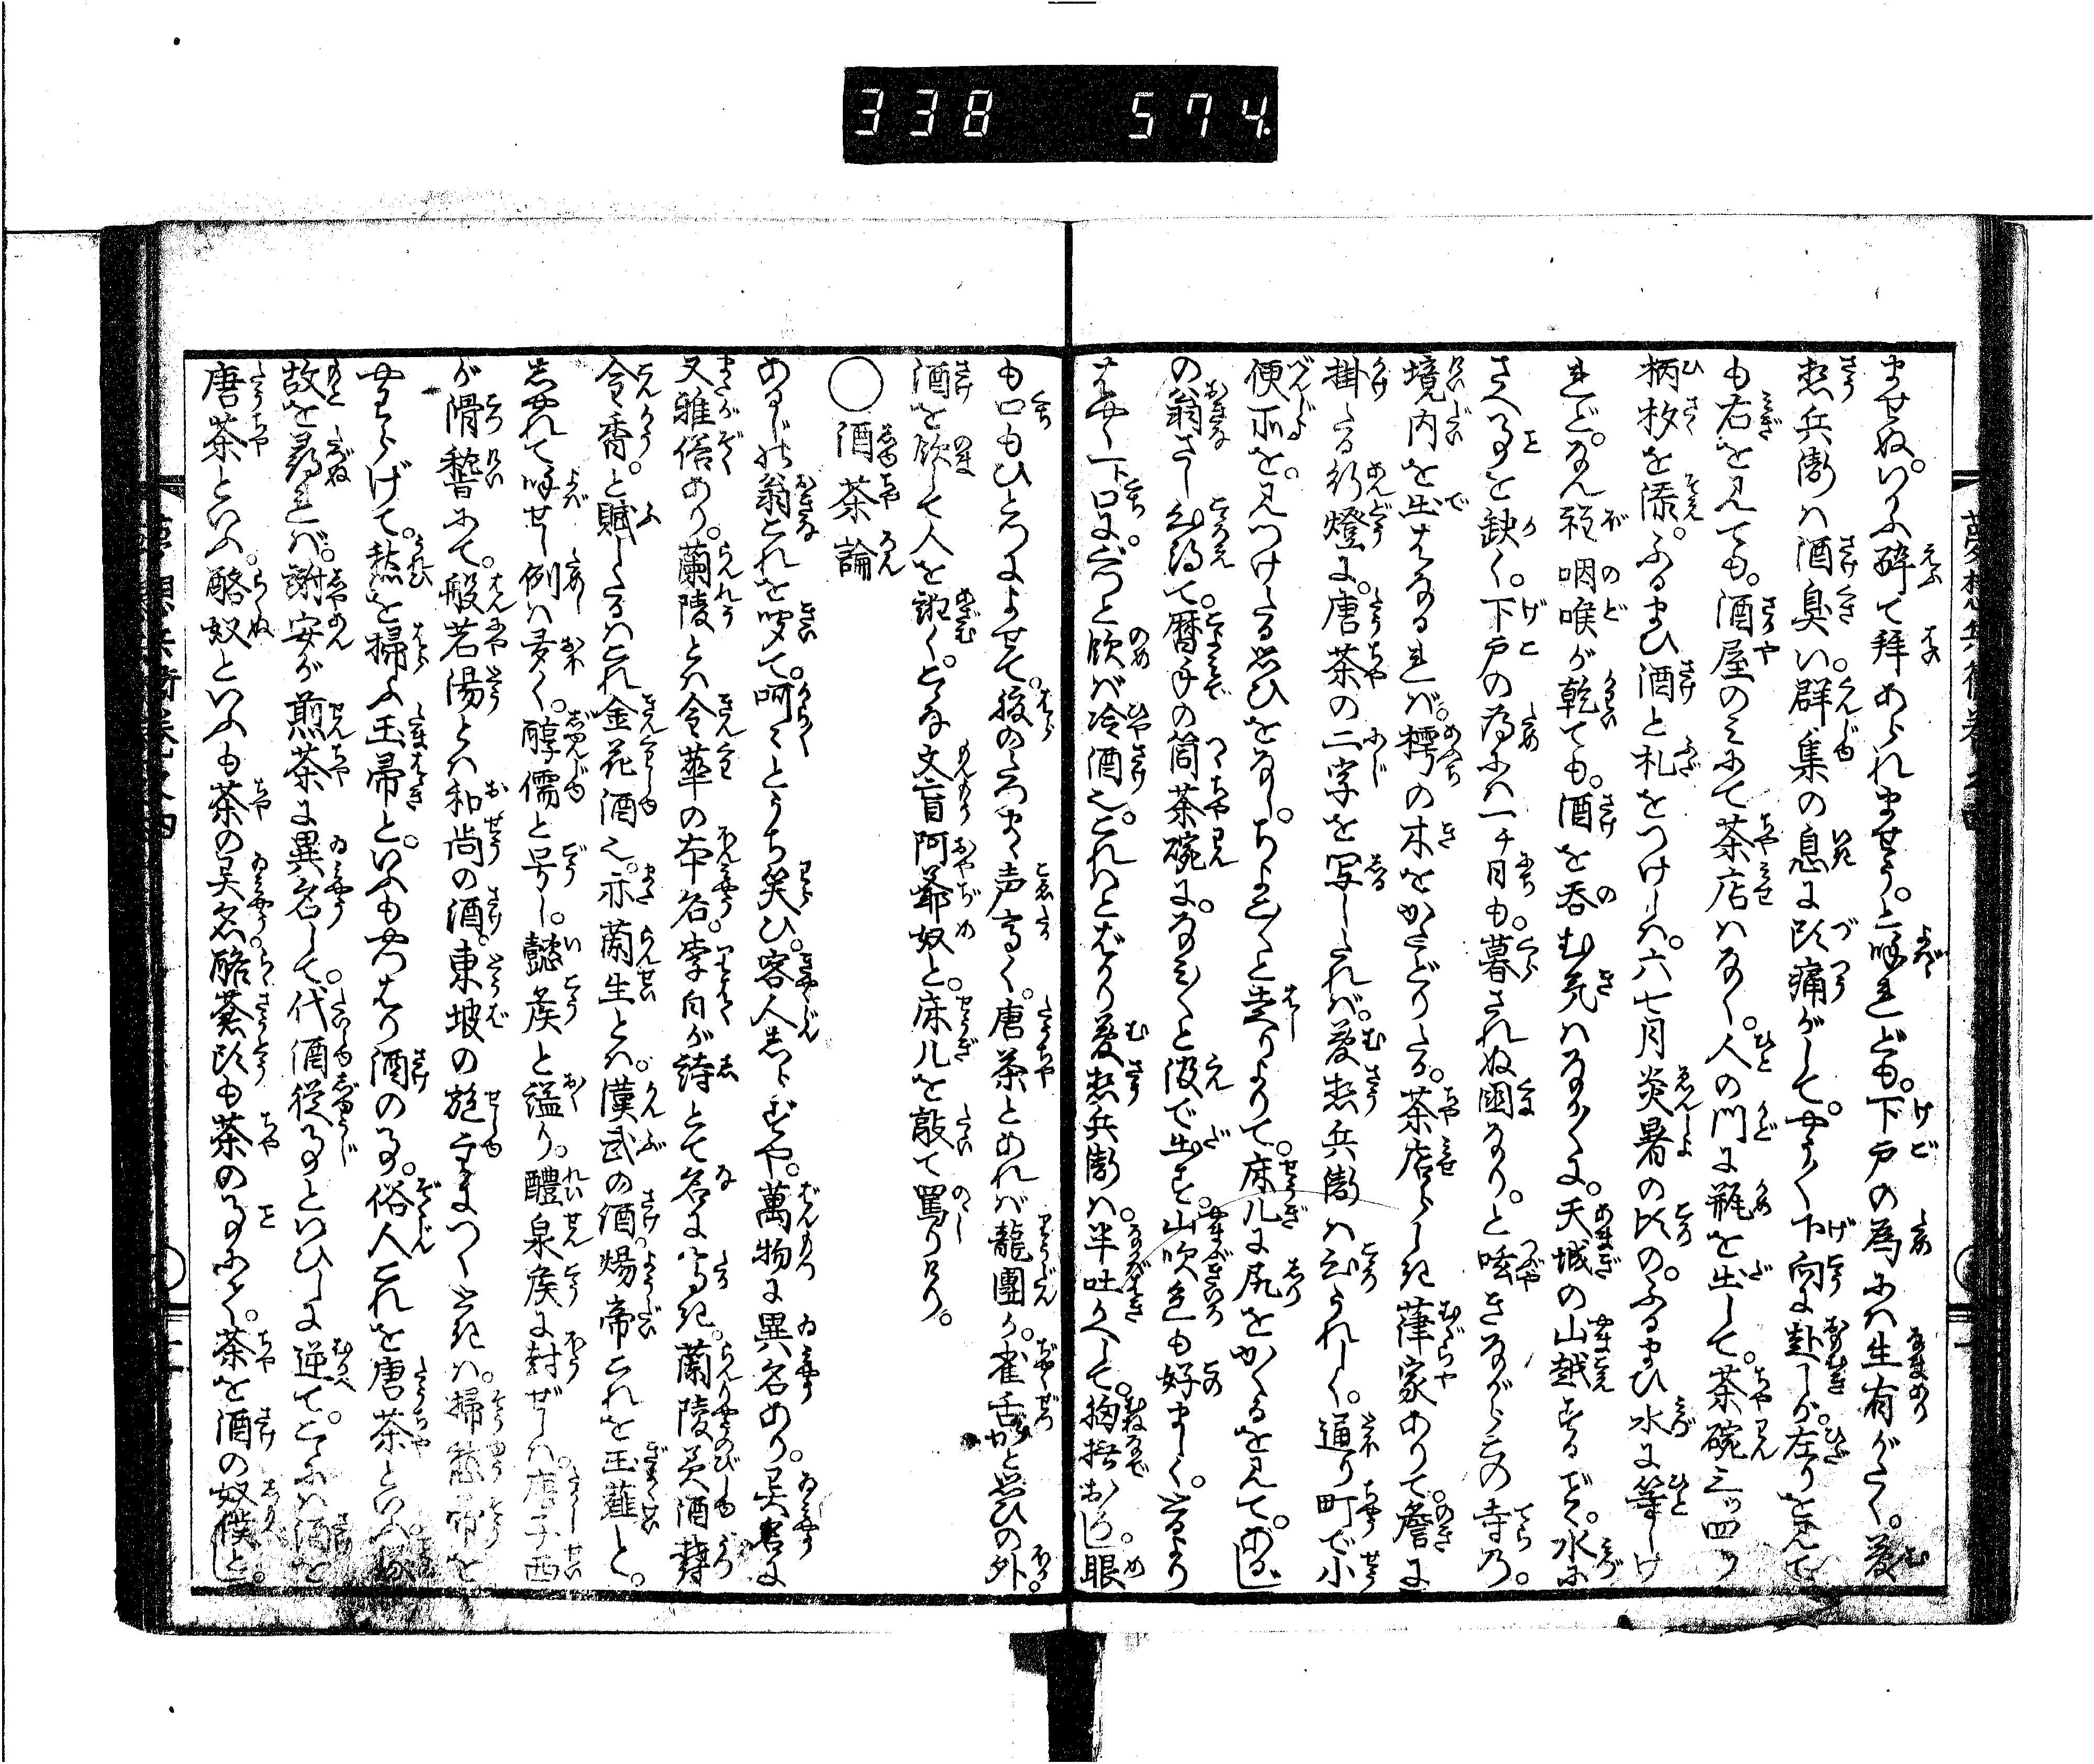 338 574
ませぬ。いかふ酔て拝あられませう。と呼れども。下戸の為には生有がたく。夢
想兵衛は酒臭い。群集の息に頭痛がして。やう〳〵下向に赴しが。左りを見て
も右を見ても。酒屋のみにて茶店はなく。人の門に瓶を出して。茶碗三ッ四ッ
柄杓を添。ふるまひ酒と札をつけしは。六七月炎暑の比の。ふるまひ水に等しけ
れど。なん程咽喉が乾ても。酒を呑む気はなかりしに。天城の山越するごとく。水に
さへ事を缺く。下戸の為には一チ日も。暮されぬ国なり。と呟きながらこの寺の。
境内を出はなるれば。樗の木をかたどりたる。茶店らしき葎家ありて。簷に
掛たる行燈に。唐茶の二字を写したれば。夢想兵衛は心うれしく。通り町で小
便所を。見つけたる思ひをなし。ちよこ〳〵と走りよりて。床几に尻をかくるを見て。あるじ
の翁さし心得て。暦手の筒茶碗に。なみ〳〵と汲で出す。山吹色も好ましく。
はやく一ト口に。ぐつと飲ば冷酒也。これはとばかり夢想兵衛は。半吐かへして。胸撫おろし。眼
も口もひとつによせて。腹のたつまゝ声高く。唐茶とあれば龍團か。雀舌かと思ひの外。
酒を飲して人を誑く。こな文盲阿爺奴と。床几を敲て罵りけり。
◯酒茶論
あるじの翁これを聴て。呵々とうち笑ひ。客人しらずや。萬物に異名あり。異名に
又雅俗あり。蘭陵とは令華の本名。李白が詩とて名に高き。蘭陵美酒鬱
金香。と賦したるはこれ金花酒也。亦蘭生とは。漢武の酒。煬帝これを玉薤と。
しやれて呼せし例は多く。醇儒と号し。懿侯と謚り。醴泉侯に封ぜしは。唐子西
が滑稽にて。般若湯とは和尚の酒。東坡の施主につくときは。掃愁帚を
やはらげて。愁を掃ふ玉帚と。いふもやつはり酒の事。俗人これを唐茶といふ。
故を尋れば。謝安が煎茶に異名して。代酒從事といひしに逆て。こゝには酒を
唐茶といふ。酪奴といふも茶の异名酪蒼頭も茶の事にて。茶を酒の奴僕と。